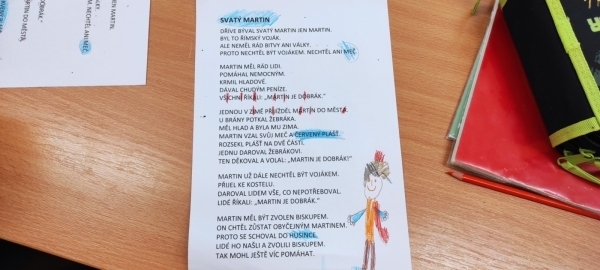 SVATÝ MARTIN
DŘÍVE BÝVAL SVATÝ MARTIN JEN MARTIN.
BYL TO ŘÍMSKÝ VOJÁK.
ALE NEMĚL RÁD BITVY ANI VÁLKY.
PROTO NECHTĚL BÝT VOJÁKEM. NECHTĚL ANI MEČ
MARTIN MĚL RÁD LIDI.
POMÁHAL NEMOCNÝM.
KRMIL HLADOVÉ.
DÁVAL CHUDÝM PENÍZE.
VŠICHNI ŘÍKALI: „MARTIN JE DOBRÁK.“
JEDNOU V ZIMĚ PŘIJÍŽDĚL MARTIN DO MĚSTA.
U BRÁNY POTKAL ŽEBRÁKA.
MĚL HLAD A BYLA MU ZIMA.
MARTIN VZAL SVŮJ MEČ A ČERVENÝ PLÁŠŤ.
ROZSEKL PLÁŠŤ NA DVĚ ČÁSTI.
JEDNU DAROVAL ŽEBRÁKOVI.
TEN DĚKOVAL A VOLAL: „MARTIN JE DOBRÁK!“
MARTIN UŽ DÁLE NECHTĚL BÝT VOJÁKEM.
PŘIJEL KE KOSTELU.
DAROVAL LIDEM VŠE, CO NEPOTŘEBOVAL.
LIDÉ ŘÍKALI: „MARTIN JE DOBRÁK.“
MARTIN MĚL BÝT ZVOLEN BISKUPEM.
ON CHTĚL ZŮSTAT OBYČEJNÝM MARTINEM.
PROTO SE SCHOVAL DO HUSINCE.
LIDÉ HO NAŠLI A ZVOLILI BISKUPEM.
TAK MOHL JEŠTĚ VÍC POMÁHAT.